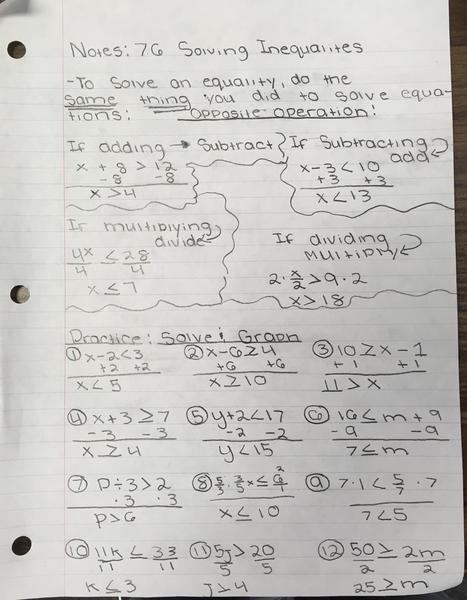 Notes: 7.6 Solving Inequalites
-To solve an equality, do the
same thing you did to solve equa-
tions: opposite operation!
If adding → Subtract
x + 8 > 12
-8 -8
x > 4
If Subtracting
add
x - 3 < 10
+3 +3
x < 13
If multiplying
divide
4x ≤ 28
4 4
x ≤ 7
If dividing
MULTIPLY
2 · x/2 > 9 · 2
x > 18
Practice: Solve & Graph
① x - 2 < 3
+2 +2
x < 5
② x - 6 ≥ 4
+6 +6
x ≥ 10
③ 10 ≥ x - 1
+1 +1
11 > x
④ x + 3 ≥ 7
-3 -3
x ≥ 4
⑤ y + 2 < 17
-2 -2
y < 15
⑥ 16 ≤ m + 9
-9 -9
7 ≤ m
⑦ P ÷ 3 > 2
· 3 · 3
P > 6
⑧ 5/3 · 3/5 x ≤ 6/1
2
x ≤ 10
⑨ 7 · 1 < 5/7 · 7
7 < 5
⑩ 11k ≤ 33
11 11
k ≤ 3
⑪ 5j > 20
5 5
j > 4
⑫ 50 ≥ 2m
2 2
25 ≥ m